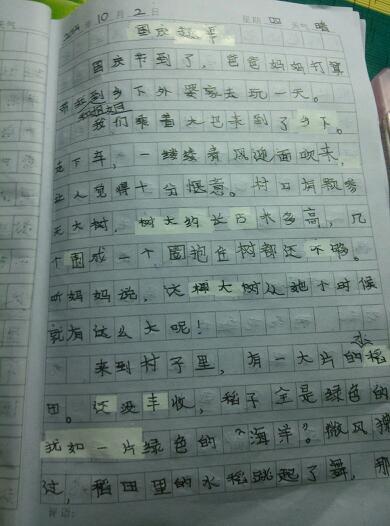 2014年10月2日 星期四 天气晴
国庆趣事
国庆节到了,爸爸妈妈打算
带我到乡下外婆家去玩一天。
和姐姐
我们乘着大巴来到了乡下。
走下车,一缕缕清风迎面吹来,
让人觉得十分惬意。村口有颗参
天大树,树大约长百米多高,几
个围成一个圈抱住树都还不够。
听妈妈说,这棵大树从她小时候
就有这么大呢!
来到村子里,有一大片的水稻
田。还没丰收,稻子全是绿色的
犹如一片绿色的“海洋”。微风拂
过,稻田里的水稻跳起了舞,那
评语: